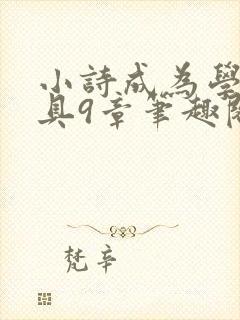 小詩成為學
具9章筆趣閣
梵辛